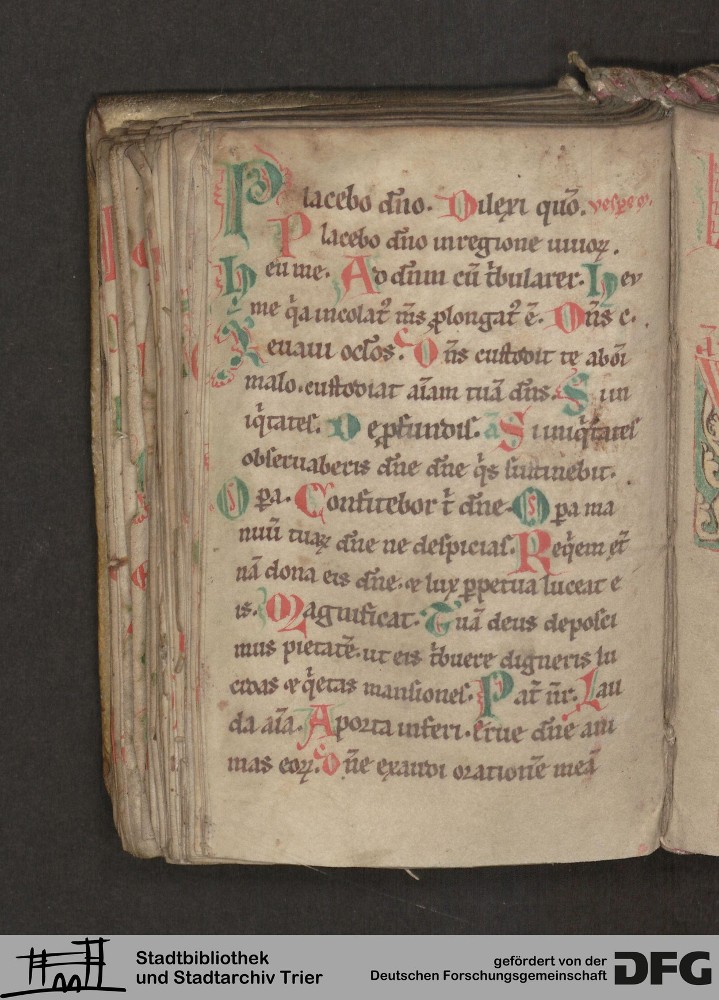 Placebo dño. Dilexi quõ. vesp̃e
Placebo dño inregione uiuoꝝ.
heu me. Ad dñm cũ t̃bularer. heu
me q̃a incolatꝰ m̃s ꝓlongatꝰ ẽ. Dñs c.
Leuaui oc̃los. Dñs custodit te abõi
malo. custodiat aĩam tuã dñs. Si in
iq̃tates. De ꝓfundis. ã Si iniq̃tates
obseruaberis dñe dñe q̃s sustinebit.
Opa. Confitebor t̃ dñe. Opa ma
nuũ tuaꝝ dñe ne despicias. Req̃em et̃
nã dona eis dñe. ⁊ lux ꝑpetua luceat e
is. Magnificat. Tuã deus deposci
mus pietatẽ. ut eis t̃buere digneris lu
cidas ⁊ q̃etas mansiones. Pat̃ nr̃. Lau
da aĩa. A porta inferi. erue dñe ani
mas eoꝝ. Dñe exaudi orationẽ meã
Stadtbibliothek
und Stadtarchiv Trier
gefördert von der
Deutschen Forschungsgemeinschaft DFG